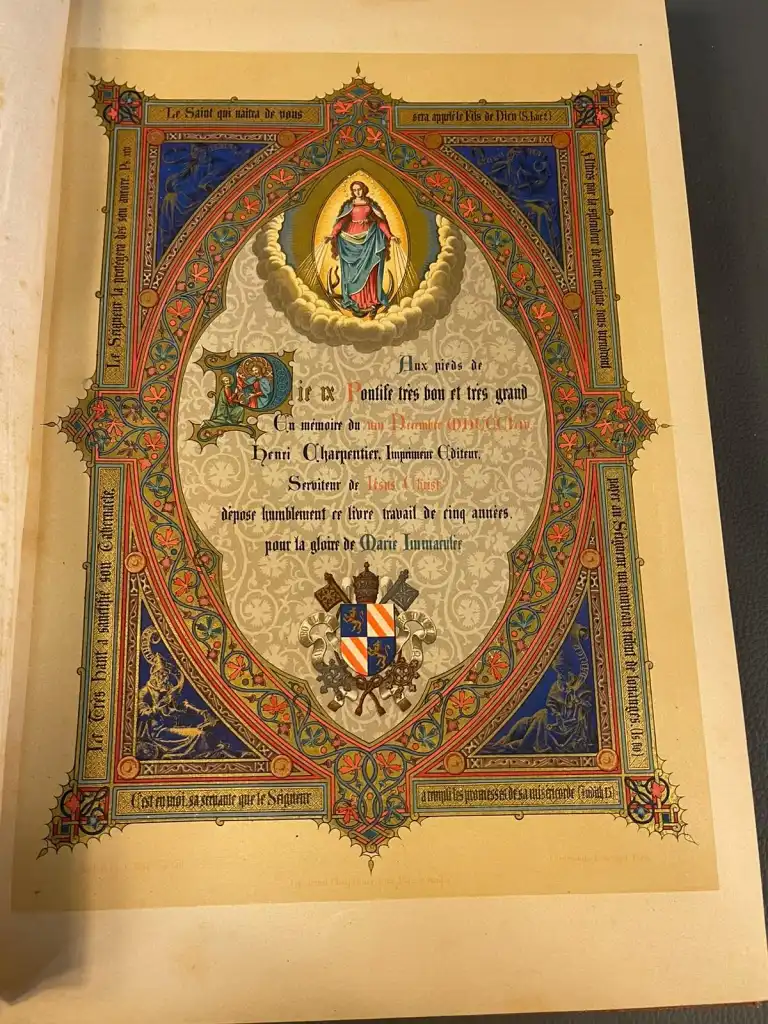 Le Saint qui naîtra de vous
sera appelé le Fils de Dieu (S. Luc 1)
Le Seigneur la protégera dès son aurore. Ps. XLV
Aux pieds de
Pie IX Pontife très bon et très grand
En mémoire du VIII Décembre MDCCCLIV
Henri Charpentier, Imprimeur Editeur,
Serviteur de Jésus Christ
dépose humblement ce livre travail de cinq années,
pour la gloire de Marie Immaculée
Le Très Haut a sanctifié son Tabernacle.
payer au Seigneur un nouveau tribut de louanges. (Is. 60)
C'est en moi, sa servante que le Seigneur
a rempli les promesses de sa miséricorde (Judith 13)